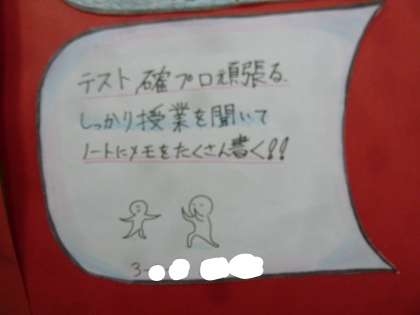 テスト確プロ頑張る
しっかり授業を聞いて
ノートにメモをたくさん書く!!
3-